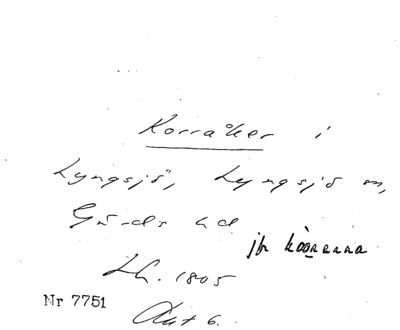 Korråker i
Lyngsjö, Lyngsjö sn,
Gärds hd
jfr
Lh. 1805
Nr 7751
Akt 6.